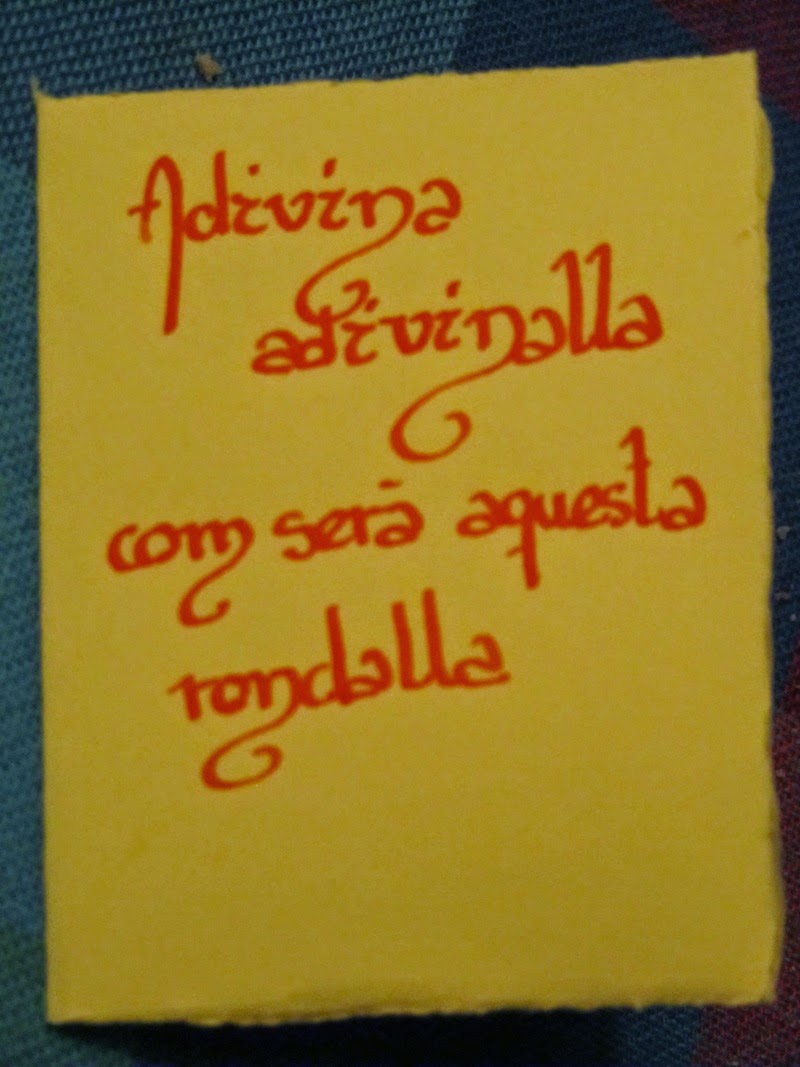 Adivina
adivinalla
com serà aquesta
rondalla